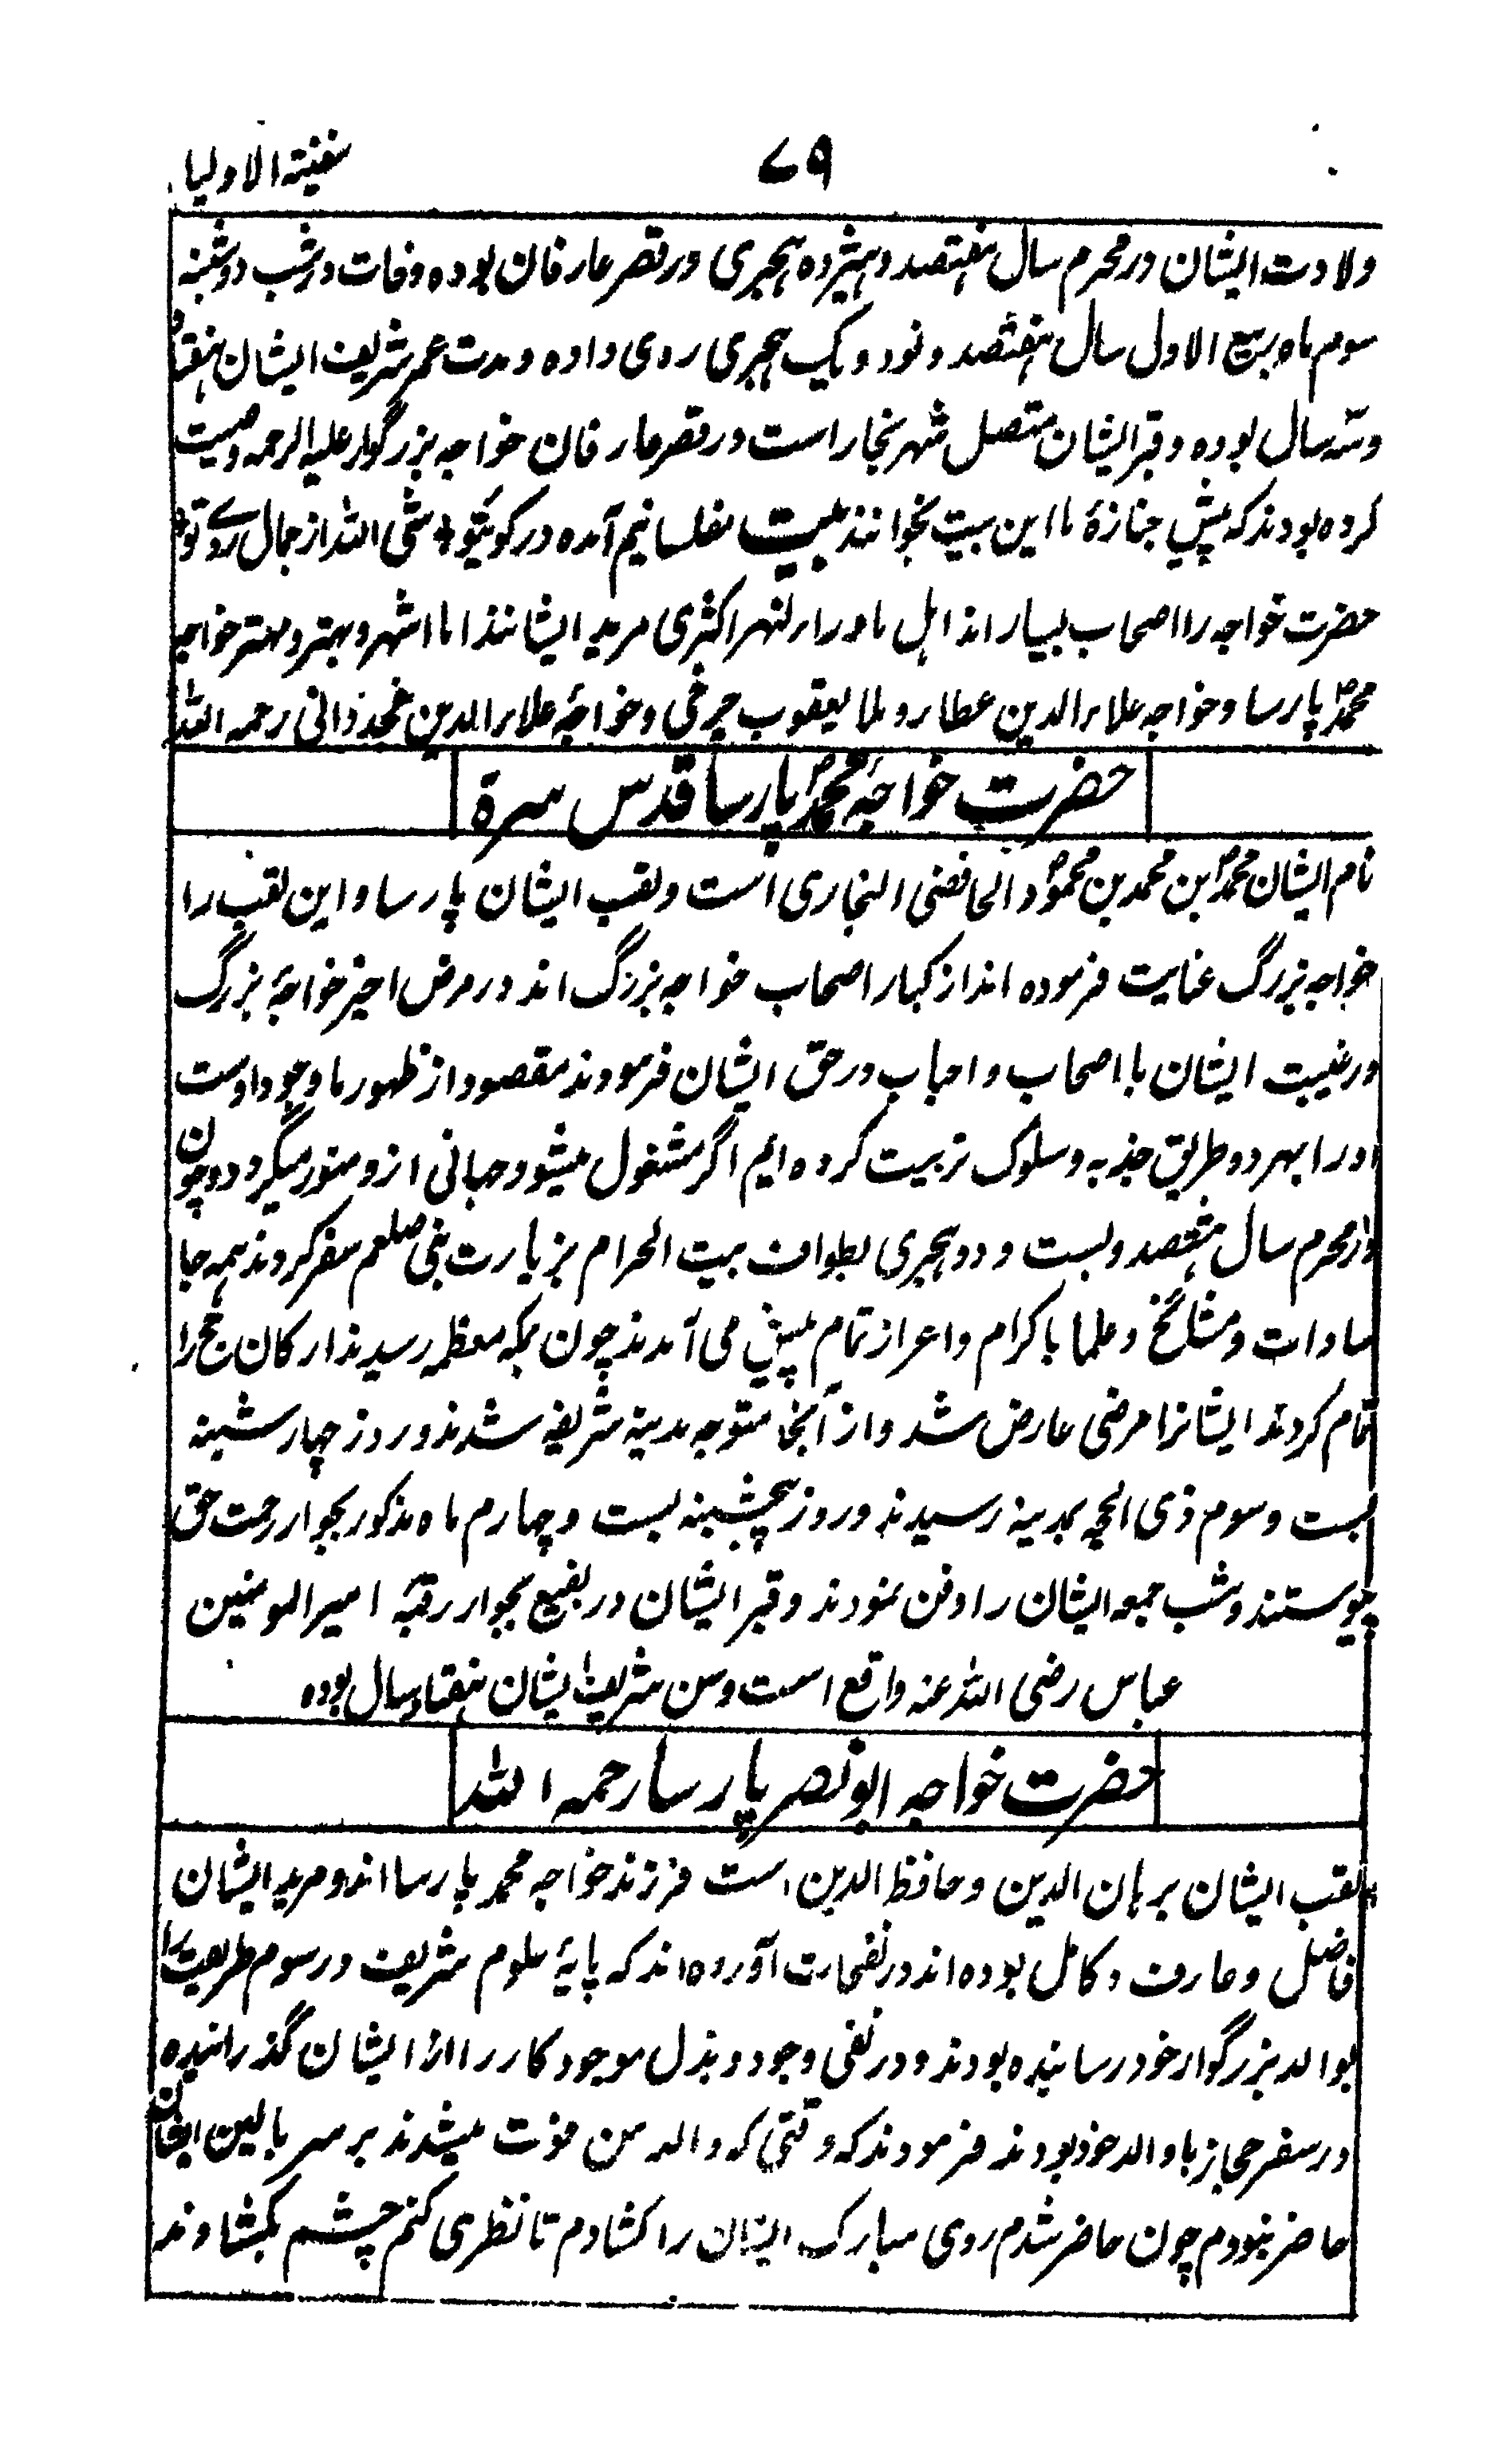 ۷۹ سفینۃ الاولیا
ولادت ایشان در محرم سال ہفتصد و ہیژدہ ہجری در قصر عارفان بودہ وفات در شب دوشنبہ
سوم ماہ ربیع الاول سال ہفتصد و نود و یک ہجری روی دادہ و مدت عمر شریف ایشان ہفتاد
و سہ سال بودہ و قبر ایشان متصل شہر بخارا است در قصر عارفان خواجہ بزرگوار علیہ الرحمہ وصیت
کردہ بودند کہ پیش جنازۂ ما این بیت بخوانند بیت مفلسانیم آمدہ در کوی تو * شیٔ اللہ از جمال روے تو *
حضرت خواجہ را اصحاب بسیار اند اہل ماوراءلنہر اکثری مرید ایشانند اما اشہر و بہتر و مہتر خواجہ
محمدؐ پارسا و خواجہ علاء الدین عطار و ملا یعقوب چرخی و خواجۂ علاء الدین غجدوانی رحمہ اللہ
حضرت خواجۂ محمدؐ پارسا قدس سرہ
نام ایشان محمدؐ ابن محمد بن محمودؐ الحافضی البخاری است و لقب ایشان پارسا و این لقب را
خواجہ بزرگ عنایت فرمودہ اند از کبار اصحاب خواجہ بزرگ اند در مرض اخیر خواجۂ بزرگ
در غیبت ایشان با اصحاب و احباب در حق ایشان فرمودند مقصود از ظہور ما وجود اوست
او را بہر دو طریق جذبہ و سلوک تربیت کردہ ایم اگر مشغول میشود جہانی ازو منور میگردد و چون
در محرم سال ہشتصد و بست و دو ہجری بطواف بیت الحرام بزیارت نبی صلعم سفر کردند ہمہ جا
سادات و مشائخ و علما باکرام و اعزاز تمام پیش می آمدند چون بمکہ معظمہ رسیدند ارکان حج را
تمام کردند ایشانرا مرضی عارض شد و از آنجا متوجہ مدینہ شریفہ شدند و روز چہار شنبہ
بست و سوم ذی الحجہ بمدینہ رسیدند و روز پنجشنبہ بست و چہارم ماہ مذکور بجوار رحمت حق
پیوستند و شب جمعہ ایشان را دفن نمودند و قبر ایشان در بقیع بجوار رقبۂ امیر المومنین
عباس رضی اللہ عنہ واقع است و سن شریف ایشان ہفتاد سال بودہ
حضرت خواجہ ابو نصر پارسا رحمہ اللہ
لقب ایشان برہان الدین و حافظ الدین است فرزند خواجہ محمد پارسا اند و مرید ایشان
فاضل و عارف و کامل بودہ اند در نفحات آوردہ اند کہ پایۂ علوم شریف و رسوم طریقت را
بوالد بزرگوار خود رسانیدہ بودند و در نفی وجود و بذل موجود کار را از ایشان گذرانیدہ
در سفر حجاز با والد خود بودند فرمودند کہ وقتی کہ والد من فوت میشدند بر سر بالین ایشان
حاضر نبودم چون حاضر شدم روی مبارک ایشان را کشادم تا نظری کنم چشم بکشادند